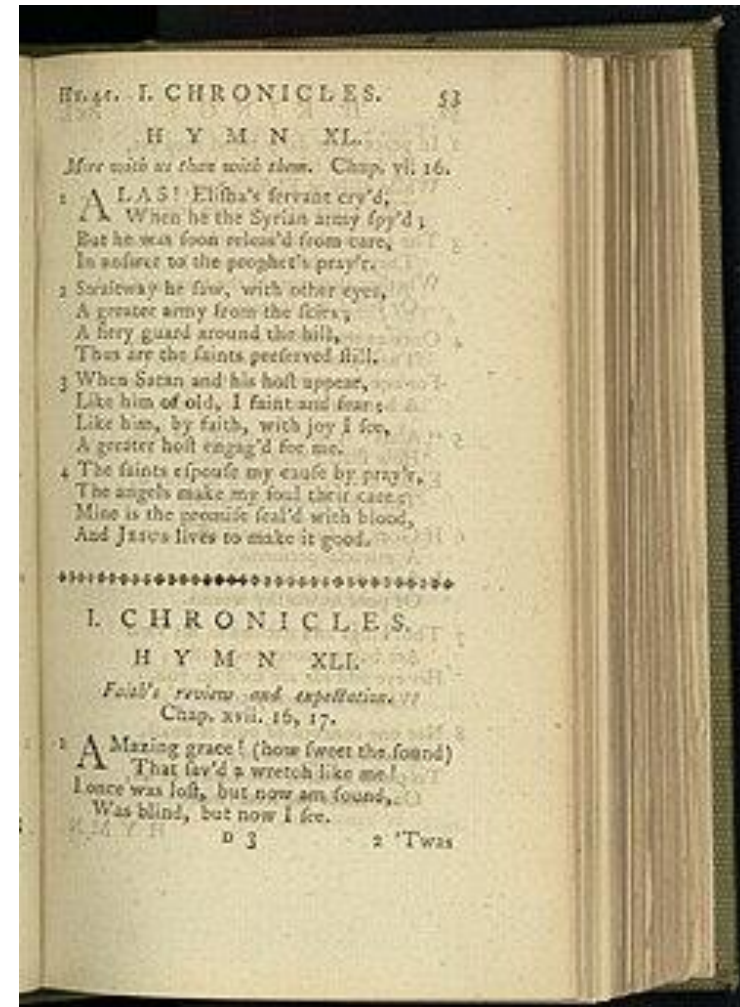 Hy. 41. I. CHRONICLES. 53
HYMN XL.
More with us than with them. Chap. vi. 16.
1 ALAS! Eliſha's ſervant cry'd,
When he the Syrian army ſpy'd;
But he was ſoon releas'd from care,
In anſwer to the prophet's pray'r.
2 Straitway he ſaw, with other eyes,
A greater army from the ſkies;
A fiery guard around the hill,
Thus are the ſaints preſerved ſtill.
3 When Satan and his hoſt appear,
Like him of old, I faint and fear;
Like him, by faith, with joy I ſee,
A greater hoſt engag'd for me.
4 The ſaints eſpouſe my cauſe by pray'r,
The angels make my ſoul their care;
Mine is the promiſe ſeal'd with blood,
And JESUS lives to make it good.
I. CHRONICLES.
HYMN XLI.
Faith's review and expectation.
Chap. xvii. 16, 17.
1 AMazing grace! (how ſweet the ſound)
That ſav'd a wretch like me!
I once was loſt, but now am found,
Was blind, but now I ſee.
D 3 2 'Twas